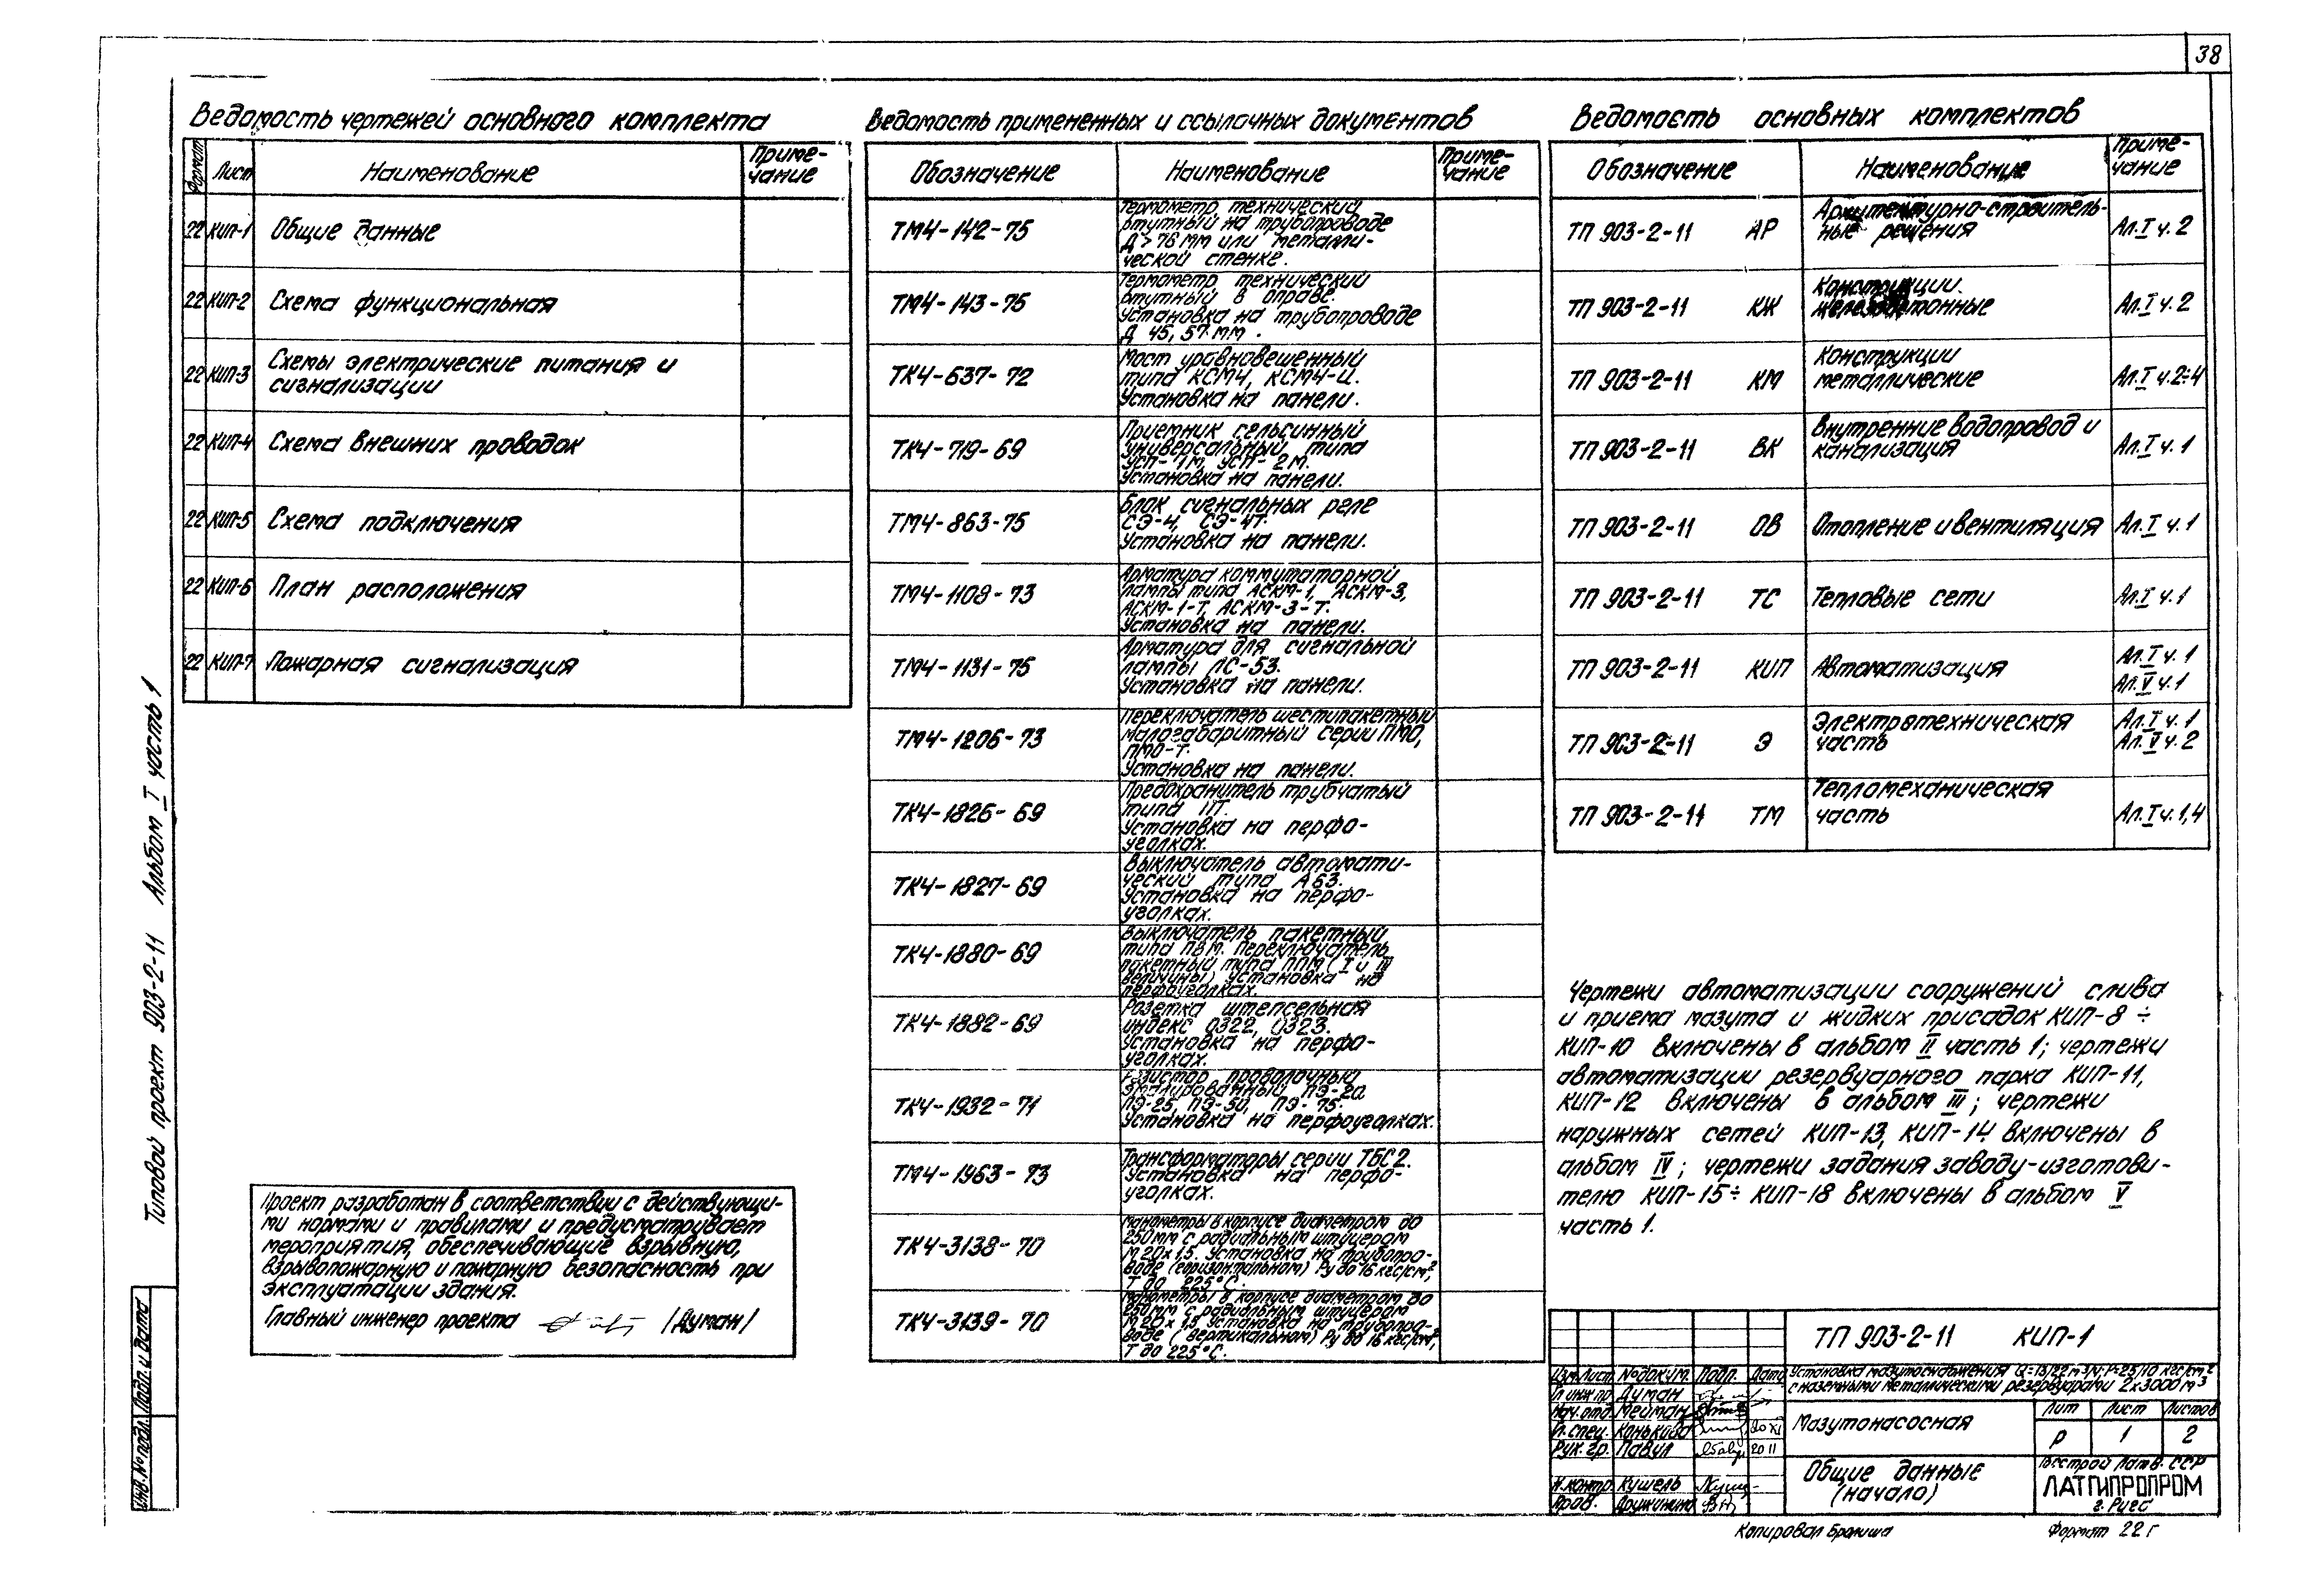 38
Ведомость чертежей основного комплекта
Формат Лист Наименование Приме-
чание
22 КИП-1 Общие данные
22 КИП-2 Схема функциональная
22 КИП-3 Схемы электрические питания и
сигнализации
22 КИП-4 Схема внешних проводок
22 КИП-5 Схема подключения
22 КИП-6 План расположения
22 КИП-7 Пожарная сигнализация
Ведомость примененных и ссылочных документов
Обозначение Наименование Приме-
чание
ТМ4-142-75 Термометр технический
ртутный на трубопроводе
Д>76 мм или металли-
ческой стенке.
ТМ4-143-75 Термометр технический
ртутный в оправе.
Установка на трубопроводе
Д 45, 57 мм.
ТК4-637-72 Мост уравновешенный
типа КСМ4, КСМ4-И.
Установка на панели.
ТК4-719-69 Приемник сельсинный
универсальный типа
УСП-1М, УСП-2М.
Установка на панели.
ТМ4-863-75 Блок сигнальных реле
СЭ-4, СЭ-4Т.
Установка на панели.
ТМ4-1108-73 Арматура коммутаторной
лампы типа АСКМ-1, АСКМ-3,
АСКМ-1-Т, АСКМ-3-Т.
Установка на панели.
ТМ4-1131-75 Арматура для сигнальной
лампы ЛС-53.
Установка на панели.
ТМ4-1206-73 Переключатель шестипакетный
малогабаритный серии ПМО,
ПМО-Т.
Установка на панели.
ТК4-1826-69 Предохранитель трубчатый
типа ПТ.
Установка на перфо-
уголках.
ТК4-1827-69 Выключатель автомати-
ческий типа А63.
Установка на перфо-
уголках.
ТК4-1880-69 Выключатель пакетный
типа ПВМ. Переключатель
пакетный типа ППМ (I и III
величины) Установка на
перфоуголках.
ТК4-1882-69 Розетка штепсельная
индекс 0322, 0323.
Установка на перфо-
уголках.
ТК4-1932-71 Резистор проволочный
эмалированный ПЭ-20
ПЭ-25, ПЭ-50, ПЭ-75.
Установка на перфоуголках.
ТМ4-1963-73 Трансформаторы серии ТБС2.
Установка на перфо-
уголках.
ТК4-3138-70 Манометры в корпусе диаметром до
250мм с радиальным штуцером
М 20х1,5. Установка на трубопро-
воде (горизонтальном) Ру до 16 кгс/см²,
Т до 225°С.
ТК4-3139-70 Манометры в корпусе диаметром до
250мм с радиальным штуцером
М 20х1,5 Установка на трубопро-
воде (вертикальном) Ру до 16 кгс/см²,
Т до 225°С.
Ведомость основных комплектов
Обозначение Наименование Приме-
чание
ТП 903-2-11 АР Архитектурно-строитель-
ные решения Ал.I ч.2
ТП 903-2-11 КЖ Конструкции
железобетонные Ал.I ч.2
ТП 903-2-11 КМ Конструкции
металлические Ал.I ч.2÷4
ТП 903-2-11 ВК Внутренние водопровод и
канализация Ал.I ч.1
ТП 903-2-11 ОВ Отопление и вентиляция Ал.I ч.1
ТП 903-2-11 ТС Тепловые сети Ал.I ч.1
ТП 903-2-11 КИП Автоматизация Ал.I ч.1
Ал.V ч.1
ТП 903-2-11 Э Электротехническая
часть Ал.I ч.1
Ал.V ч.2
ТП 903-2-11 ТМ Тепломеханическая
часть Ал.I ч.1,4
Чертежи автоматизации сооружений слива
и приема мазута и жидких присадок КИП-8 ÷
КИП-10 включены в альбом II часть 1; чертежи
автоматизации резервуарного парка КИП-11,
КИП-12 включены в альбом III; чертежи
наружных сетей КИП-13, КИП-14 включены в
альбом IV; чертежи задания заводу-изготови-
телю КИП-15÷ КИП-18 включены в альбом V
часть 1.
Проект разработан в соответствии с действующи-
ми нормами и правилами и предусматривает
мероприятия, обеспечивающие взрывную,
взрывопожарную и пожарную безопасность при
эксплуатации здания.
Главный инженер проекта /Думан/
Типовой проект 903-2-11 Альбом I часть 1
Инв.№подл. Подп. и дата
ТП 903-2-11 КИП-1
Изм. Лист №докум. Подп. Дата
Гл инж пр Думан
Нач.отд. Мейман
Гл.спец. Конькова 20 XI
Рук.гр. Павул 20 11
Н.контр. Кушель
Пров. Дружинина
Установка мазутоснабжения Q=13/22 м³/ч; Р=25/10 кгс/см²
с наземными металлическими резервуарами 2х3000 м³
Мазутонасосная
Лит Лист Листов
Р 1 2
Общие данные
(начало)
Госстрой Латв. ССР
ЛАТГИПРОПРОМ
г. Рига
Копировал
Формат 22 г